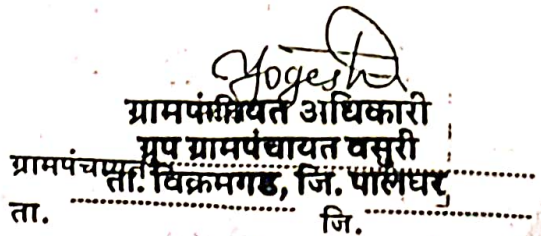 Yogesh
ग्रामपंचायत अधिकारी
ग्रुप ग्रामपंचायत वसुरी
ग्रामपंचायत
ता. विक्रमगड, जि. पालघर
ता. जि.